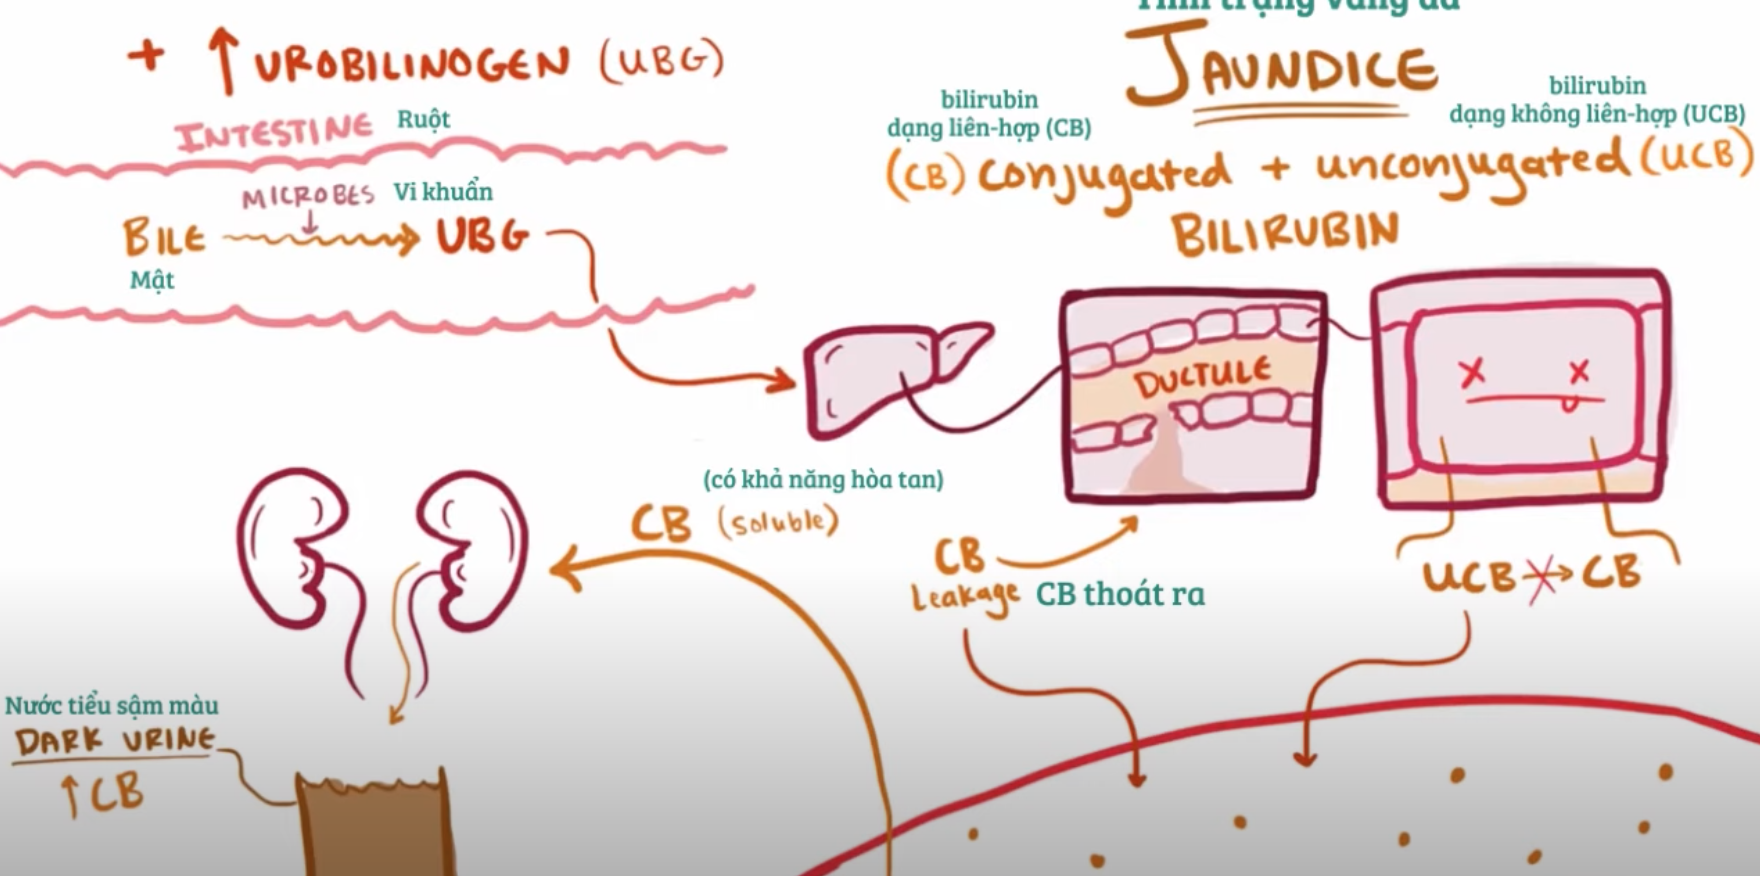 Tình trạng vàng da
JAUNDICE
+ ↑ UROBILINOGEN (UBG)
INTESTINE Ruột
MICROBES Vi khuẩn
BILE → UBG
Mật
bilirubin
dạng liên-hợp (CB)
bilirubin
dạng không liên-hợp (UCB)
(CB) conjugated + unconjugated (UCB)
BILIRUBIN
DUCTULE
(có khả năng hòa tan)
CB (soluble)
CB
Leakage CB thoát ra
UCB → CB
Nước tiểu sậm màu
DARK URINE
↑ CB